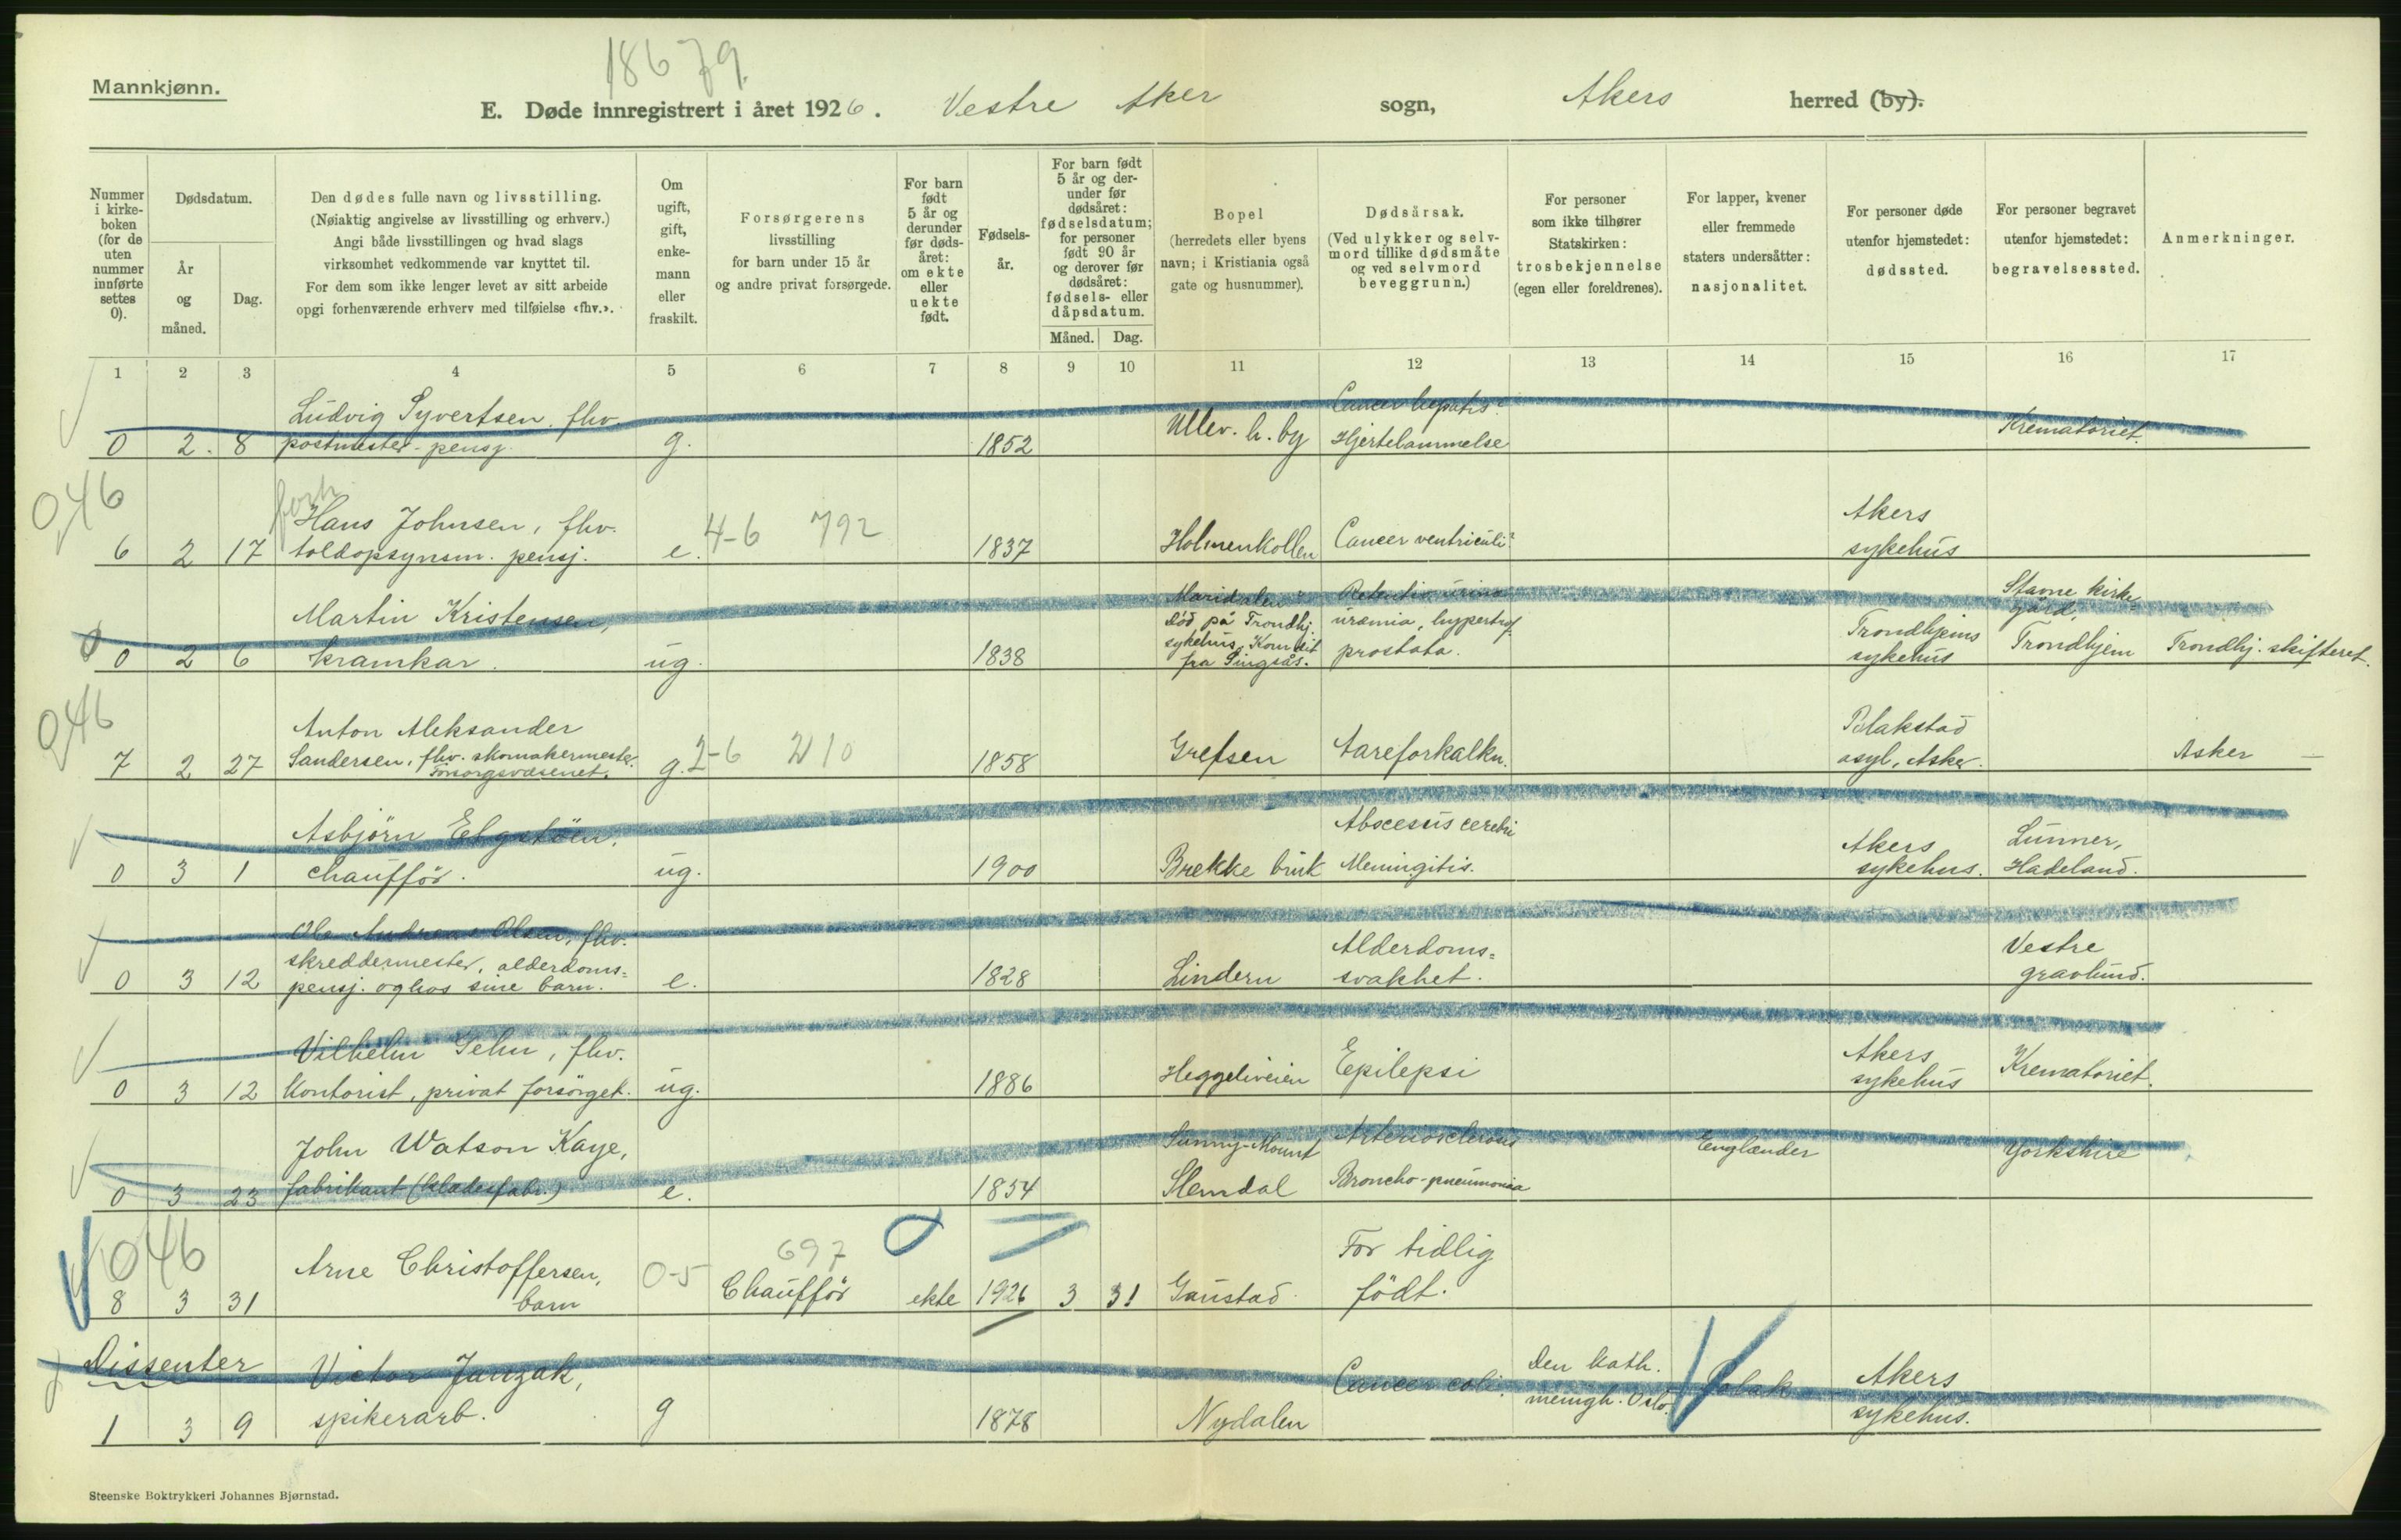 18679.
Mannkjønn.
E. Døde innregistrert i året 1926. Vestre Aker sogn, Akers herred (by).
Nummer i kirke- boken (for de uten nummer innførte settes 0).
Dødsdatum.
År og måned.
Dag.
Den dødes fulle navn og livsstilling.
(Nøiaktig angivelse av livsstilling og erhverv.)
Angi både livsstillingen og hvad slags
virksomhet vedkommende var knyttet til.
For dem som ikke lenger levet av sitt arbeide
opgi forhenværende erhverv med tilføielse «fhv.».
Om ugift, gift, enke- mann eller fraskilt.
Forsørgerens
livsstilling
for barn under 15 år
og andre privat forsørgede.
For barn født 5 år og derunder før døds- året: om ekte eller uekte født.
Fødsels- år.
For barn født 5 år og der- under før dødsåret: fødselsdatum; for personer født 90 år og derover før dødsåret: fødsels- eller dåpsdatum.
Måned. Dag.
Bopel
(herredets eller byens
navn; i Kristiania også
gate og husnummer).
Dødsårsak.
(Ved ulykker og selv-
mord tillike dødsmåte
og ved selvmord
beveggrunn.)
For personer
som ikke tilhører
Statskirken:
trosbekjennelse
(egen eller foreldrenes).
For lapper, kvener
eller fremmede
staters undersåtter:
nasjonalitet.
For personer døde
utenfor hjemstedet:
dødssted.
For personer begravet
utenfor hjemstedet:
begravelsessted.
Anmerkninger.
1 2 3 4 5 6 7 8 9 10 11 12 13 14 15 16 17
Ludvig Syvertsen, fhv. Cancer hepatis?
0 2. 8 postmester-pensj. g. 1852 Ullev. h. by Hjertelammelse Krematoriet.
046
forh
Hans Johnsen, fhv. 4-6 792 Akers
6 2 17 toldopsynsm. pensj. e. 1837 Holmenkollen Cancer ventriculi? sykehus
Martin Kristensen, Maridalen Retentio urinæ Stavne kirke-
Död på Trondhj. uræmia, hypertrof. Trondhjems gård,
0 2 6 kramkar. ug. 1838 sykehus. Kom dit prostata. sykehus Trondhjem Trondhj. skifteret.
fra Singsås.
046
Anton Aleksander Blakstad
Sandersen, fhv. skomakermester. 2-6 210
7 2 27 Forsorgsvæsenet. g. 1858 Grefsen Aareforkalkn. asyl, Asker. Asker —
Asbjörn Elgstöen, Abscessus cerebri Akers Lunner,
0 3 1 chaufför. ug. 1900 Brekke bruk Meningitis. sykehus. Hadeland.
Ole Andreas Olsen, fhv.
skreddermester, alderdoms= Alderdoms= Vestre
0 3 12 pensj. og hos sine barn. e. 1828 Lindern svakhet. gravlund.
Vilhelm Sehn, fhv. Akers
0 3 12 kontorist, privat forsörget. ug. 1886 Heggeliveien Epilepsi sykehus Krematoriet.
John Watson Kaye, Sunny-Mount Arteriosclerosis Englænder Yorkshire
0 3 23 fabrikant (klædesfabr.) e. 1854 Slemdal Broncho-pneumonia
046
Arne Christoffersen, 0-5 697 For tidlig
8 3 31 barn Chaufför ekte 1926 3 31 Gaustad. födt.
Dissenter Victor Janzak, Cancer coli. Den kath. Polak Akers
menigh. Oslo.
1 3 9 spikerarb. g 1878 Nydalen sykehus.
Steenske Boktrykkeri Johannes Bjørnstad.